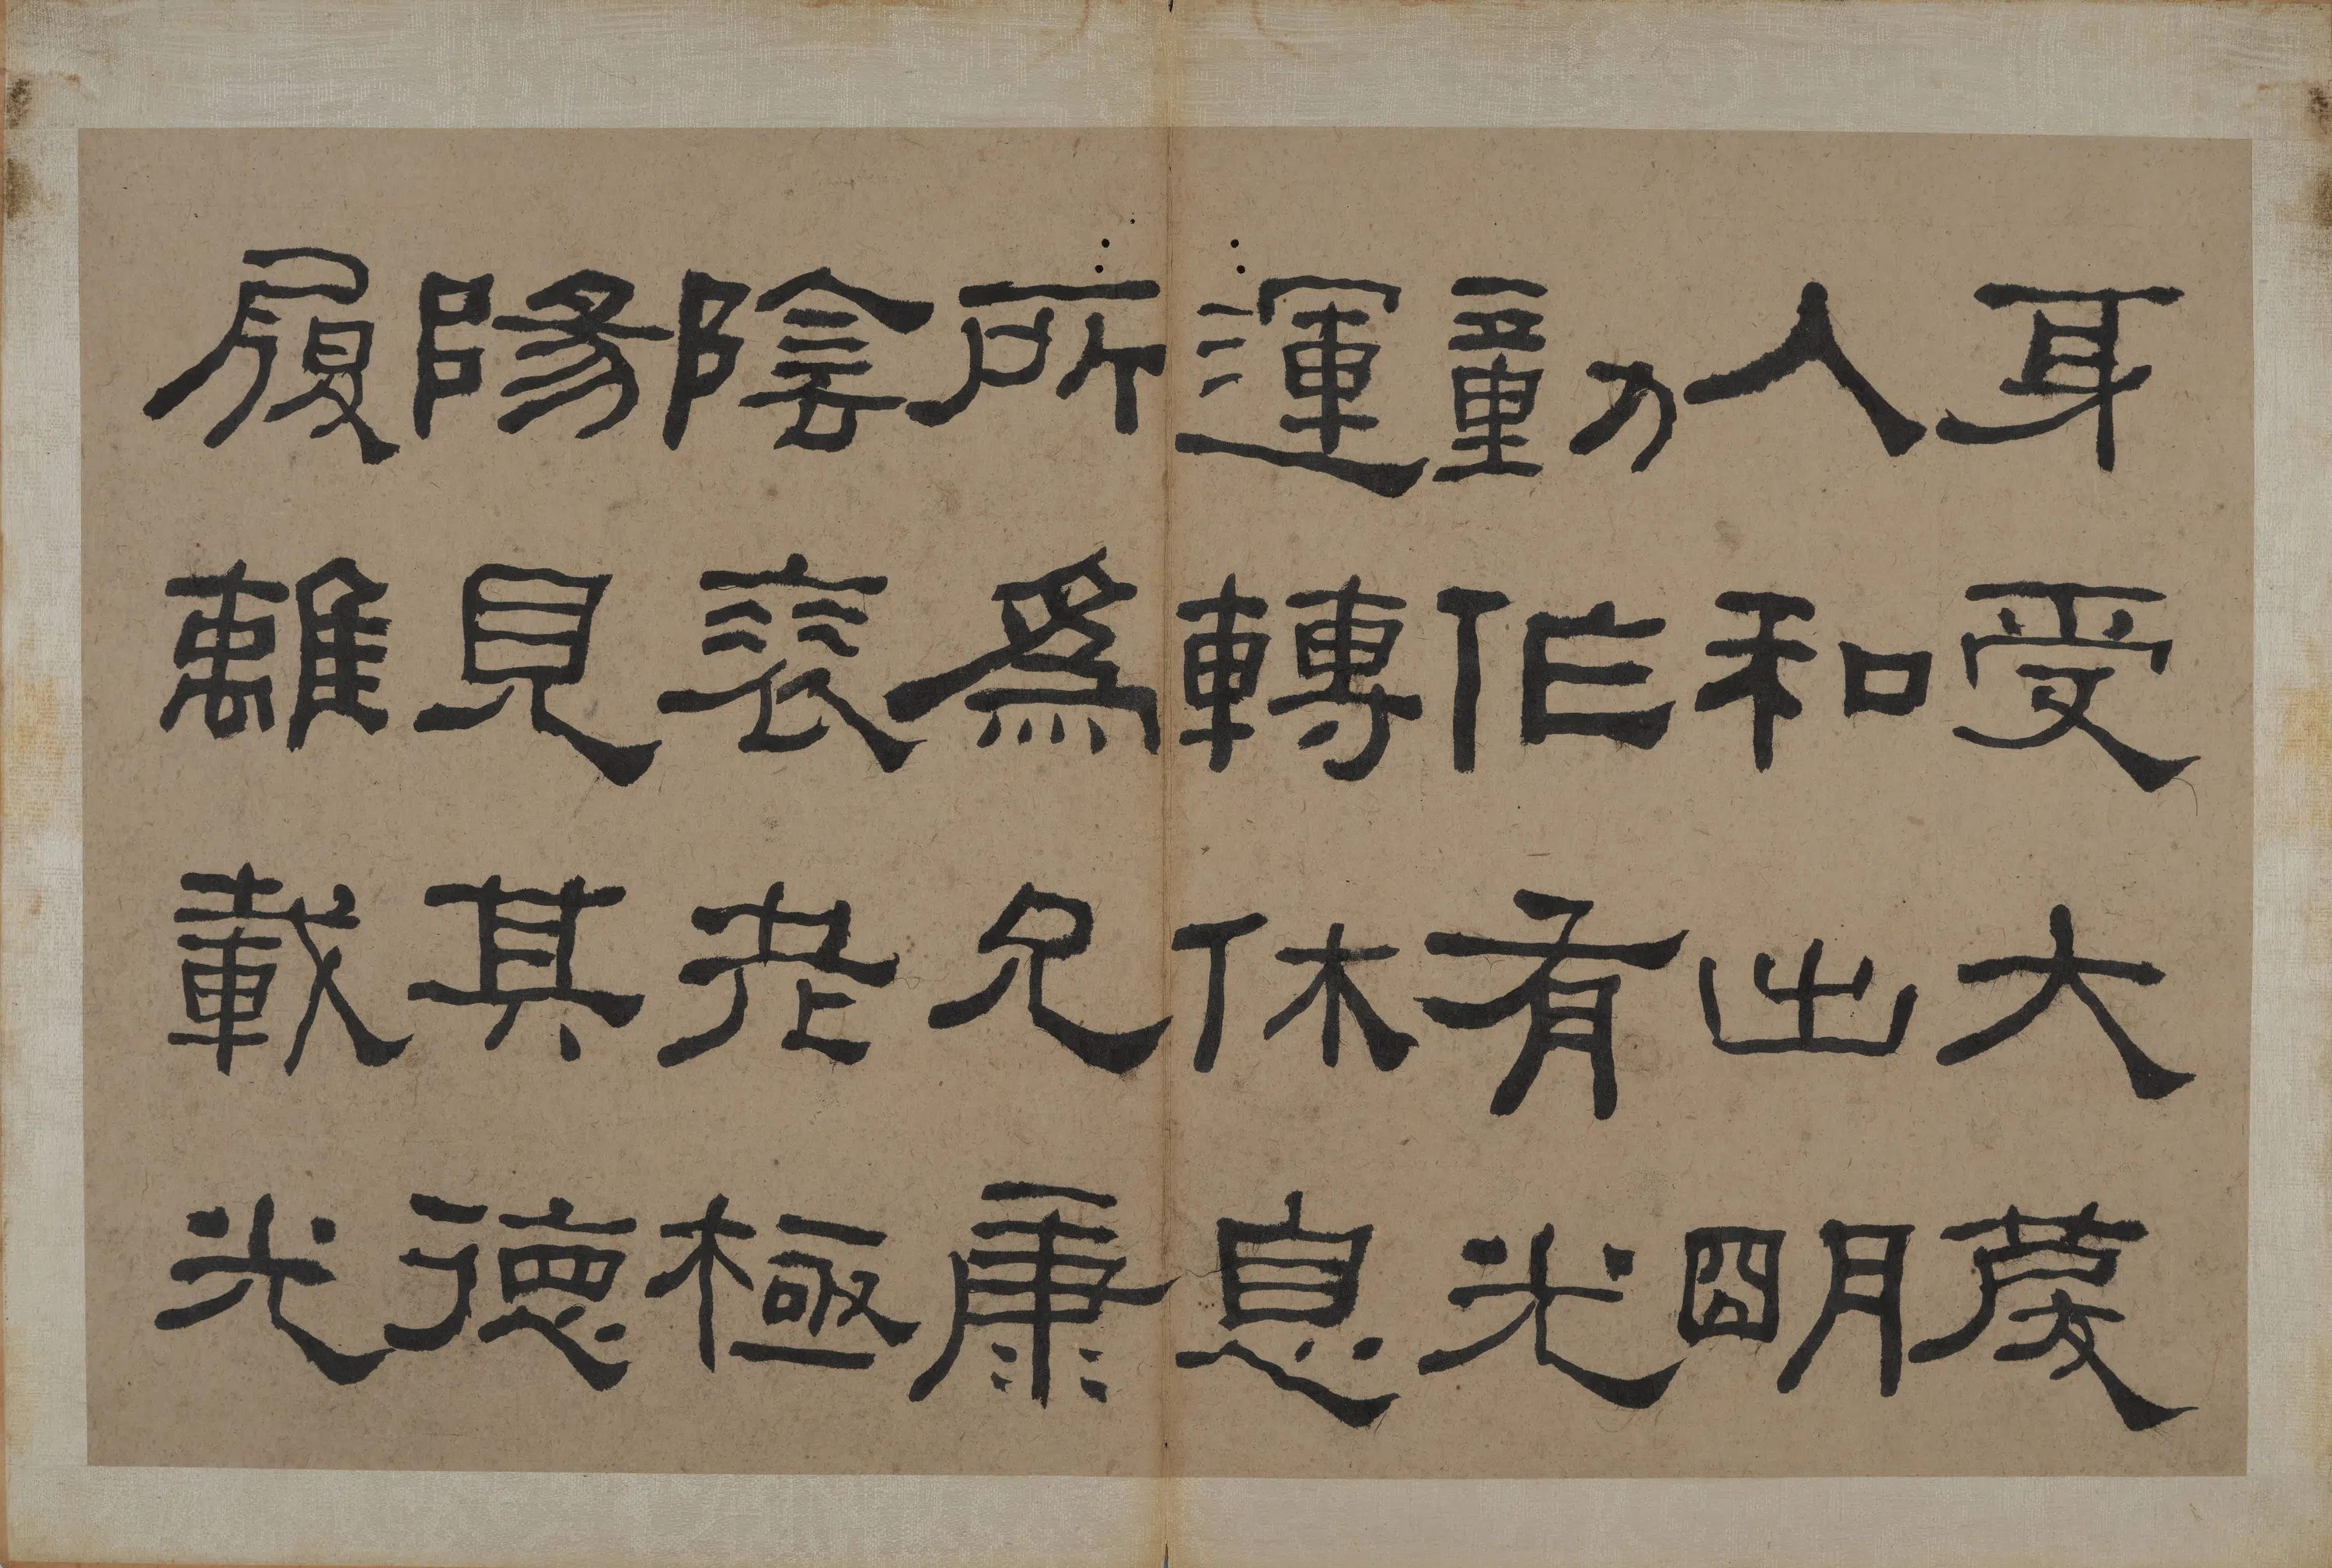 耳受大
人和出明
動作有光
運轉休息
所為允康
陰衰老極
陽見其德
履離載光